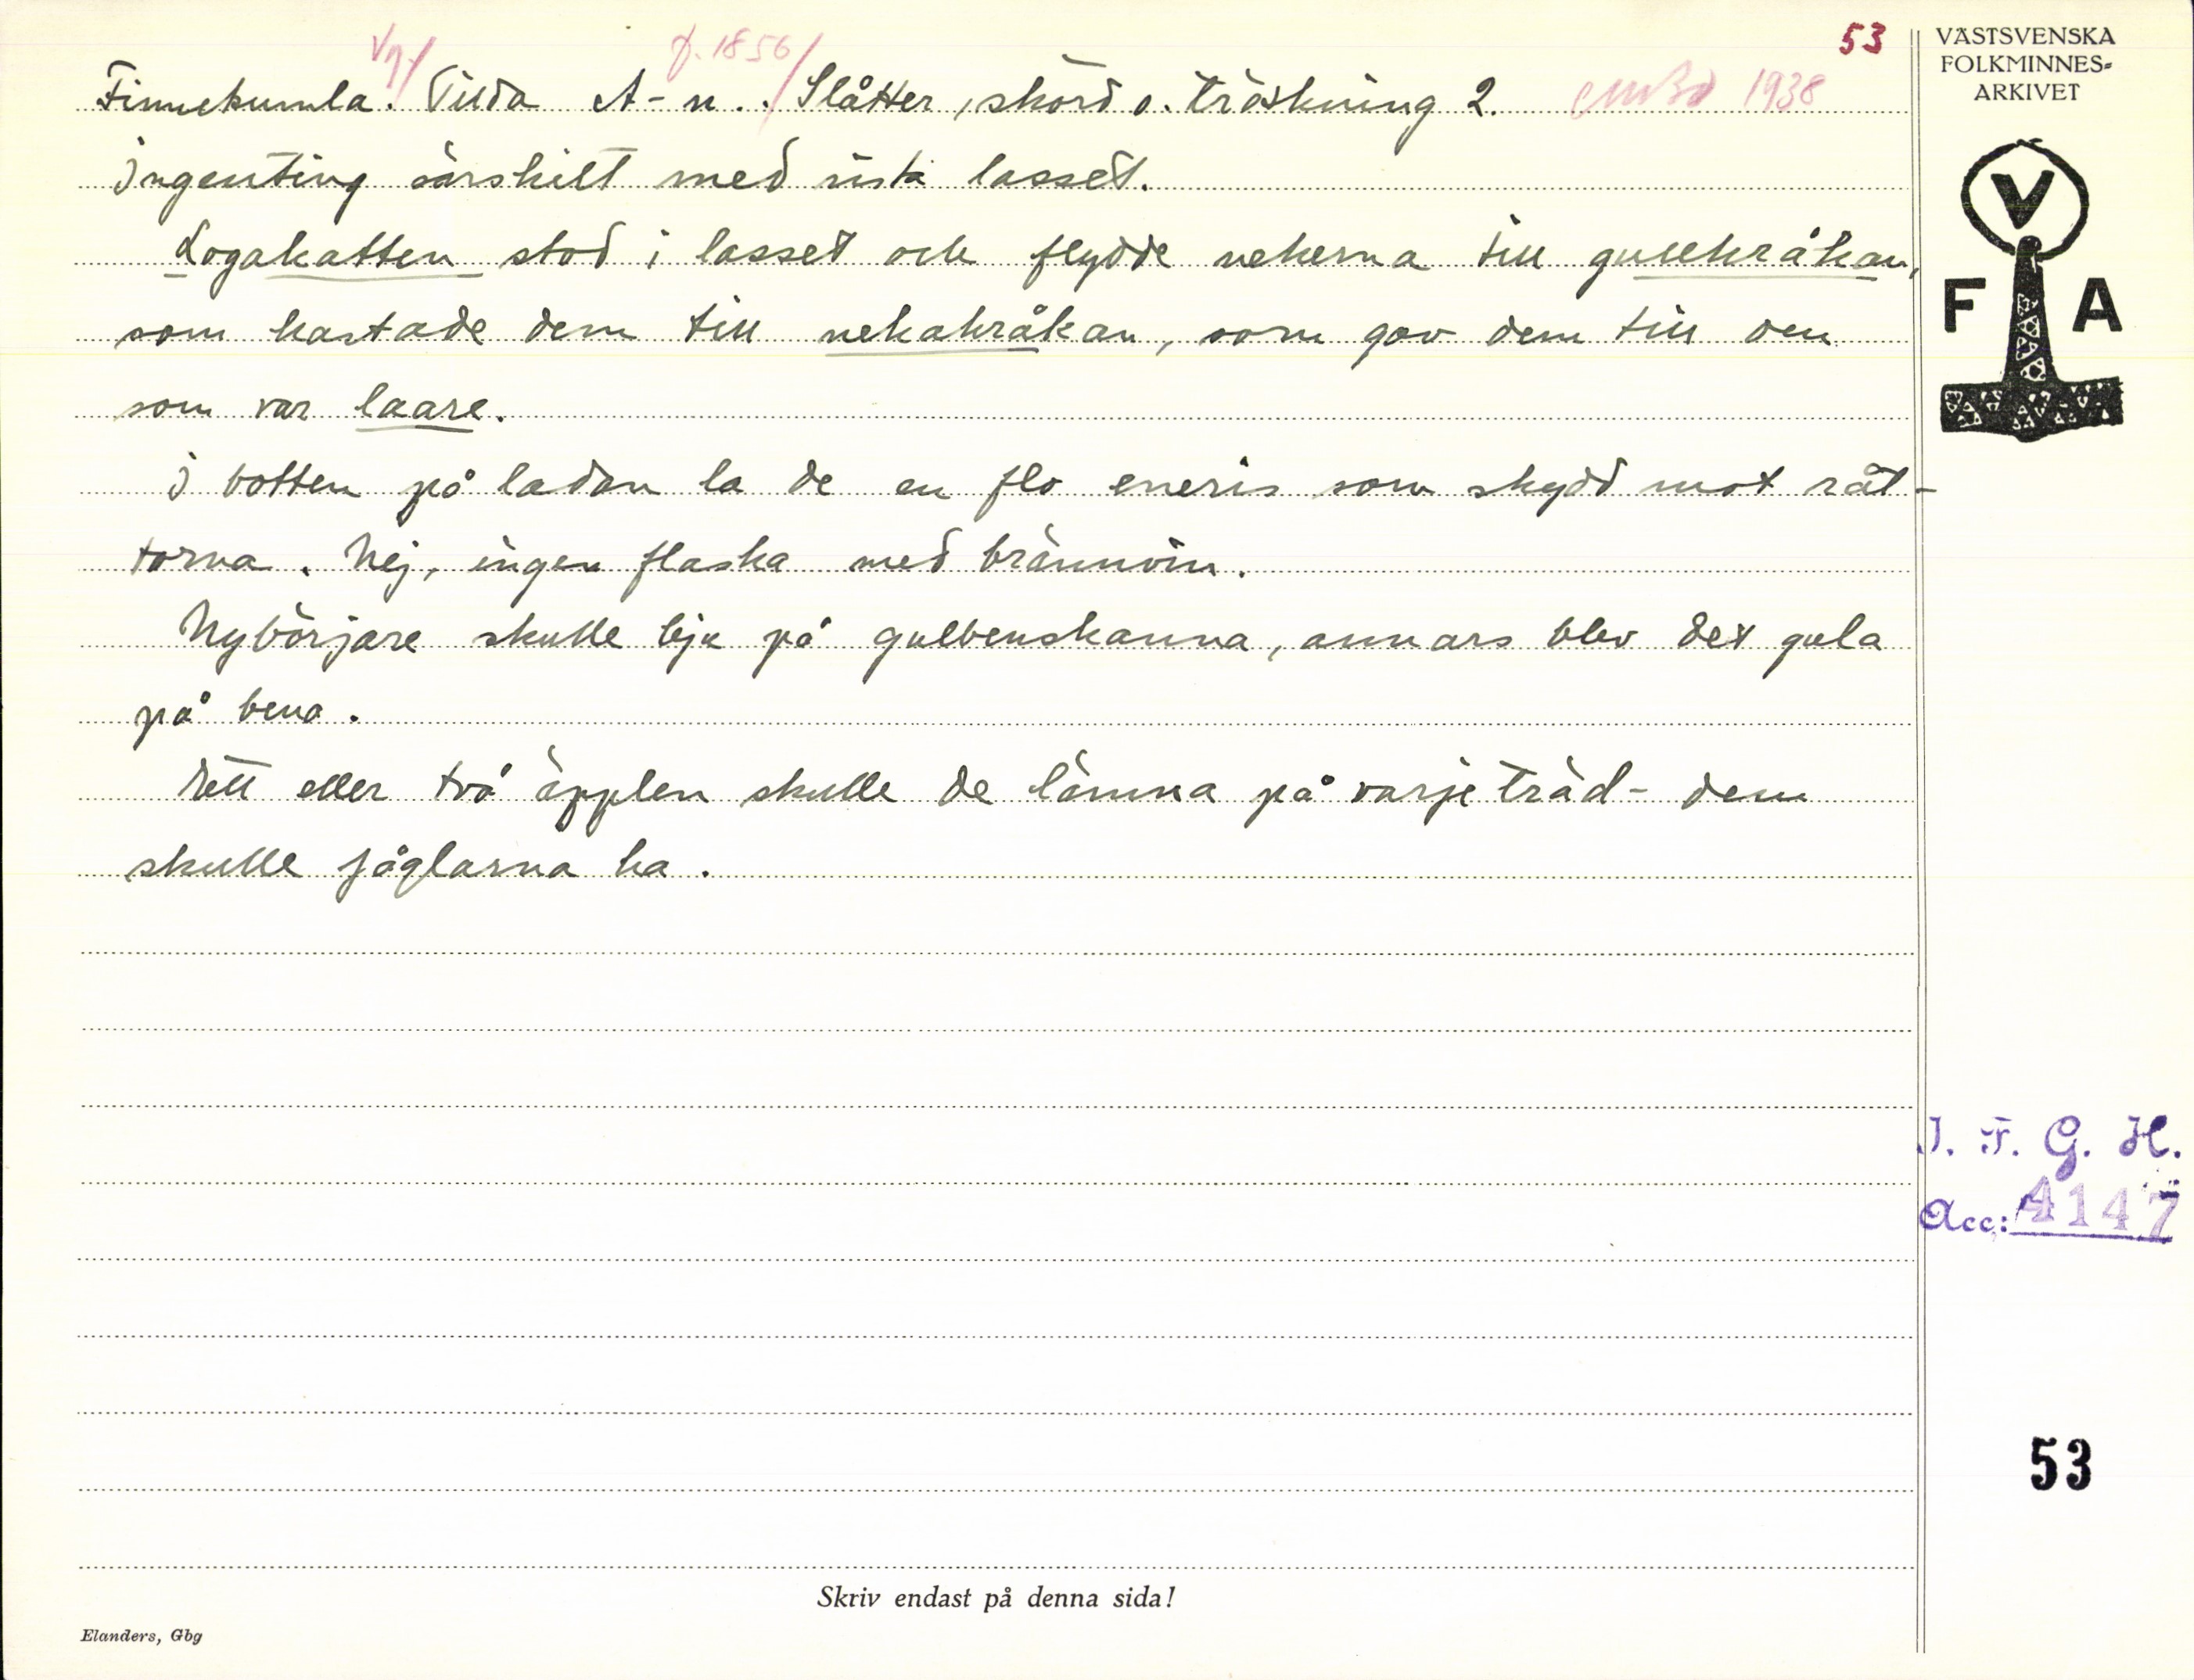 53
Vg/ f. 1856/
Finnekumla. Tilda A-n. Slåtter, skörd o. tröskning 2. 1938
Ingenting särskilt med sista lasset.
Logakatten stod i lasset och flydde nekerna till gullekråkan,
som kastade dem till nekakråkan, som gav dem till den
som var laare.
I botten på ladan la de en flo eneris som skydd mot råt-
torna. Nej, ingen flaska med brännvin.
Nybörjare skulle bju på gulbenskanna, annars blev det gula
på bena.
Ett eller två äpplen skulle de lämna på varje träd - dem
skulle fåglarna ha.
VÄSTSVENSKA
FOLKMINNES-
ARKIVET
V
F A
I. F. G. H.
Acc: 4147
53
Skriv endast på denna sida!
Elanders, Gbg